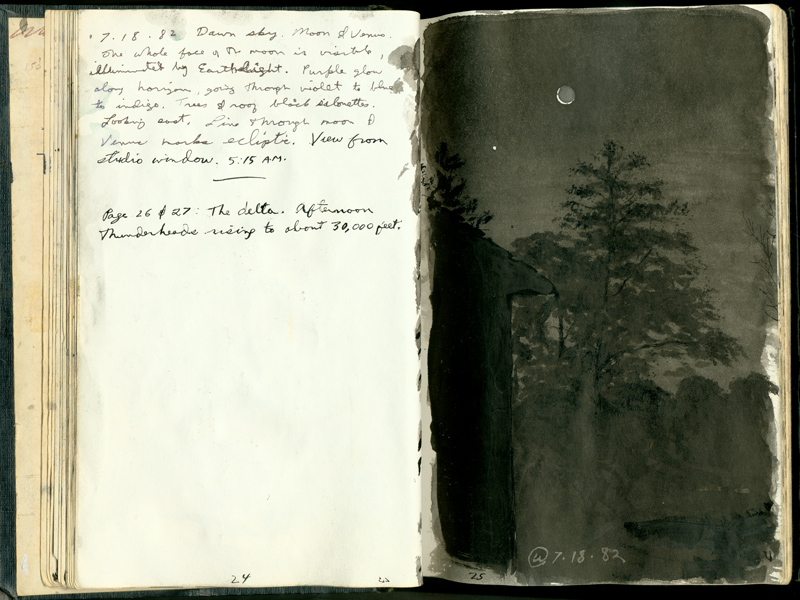 7.18.82 Dawn sky. Moon & Venus.
One whole face of the moon is visible,
illuminated by Earthlight. Purple glow
along horizon, going through violet to blue
to indigo. Trees & roof black silouettes.
Looking east. Line through moon &
Venus marks ecliptic. View from
studio window. 5:15 AM.
Page 26 & 27: The delta. Afternoon
thunderheads rising to about 30,000 feet.
24
7.18.82
25